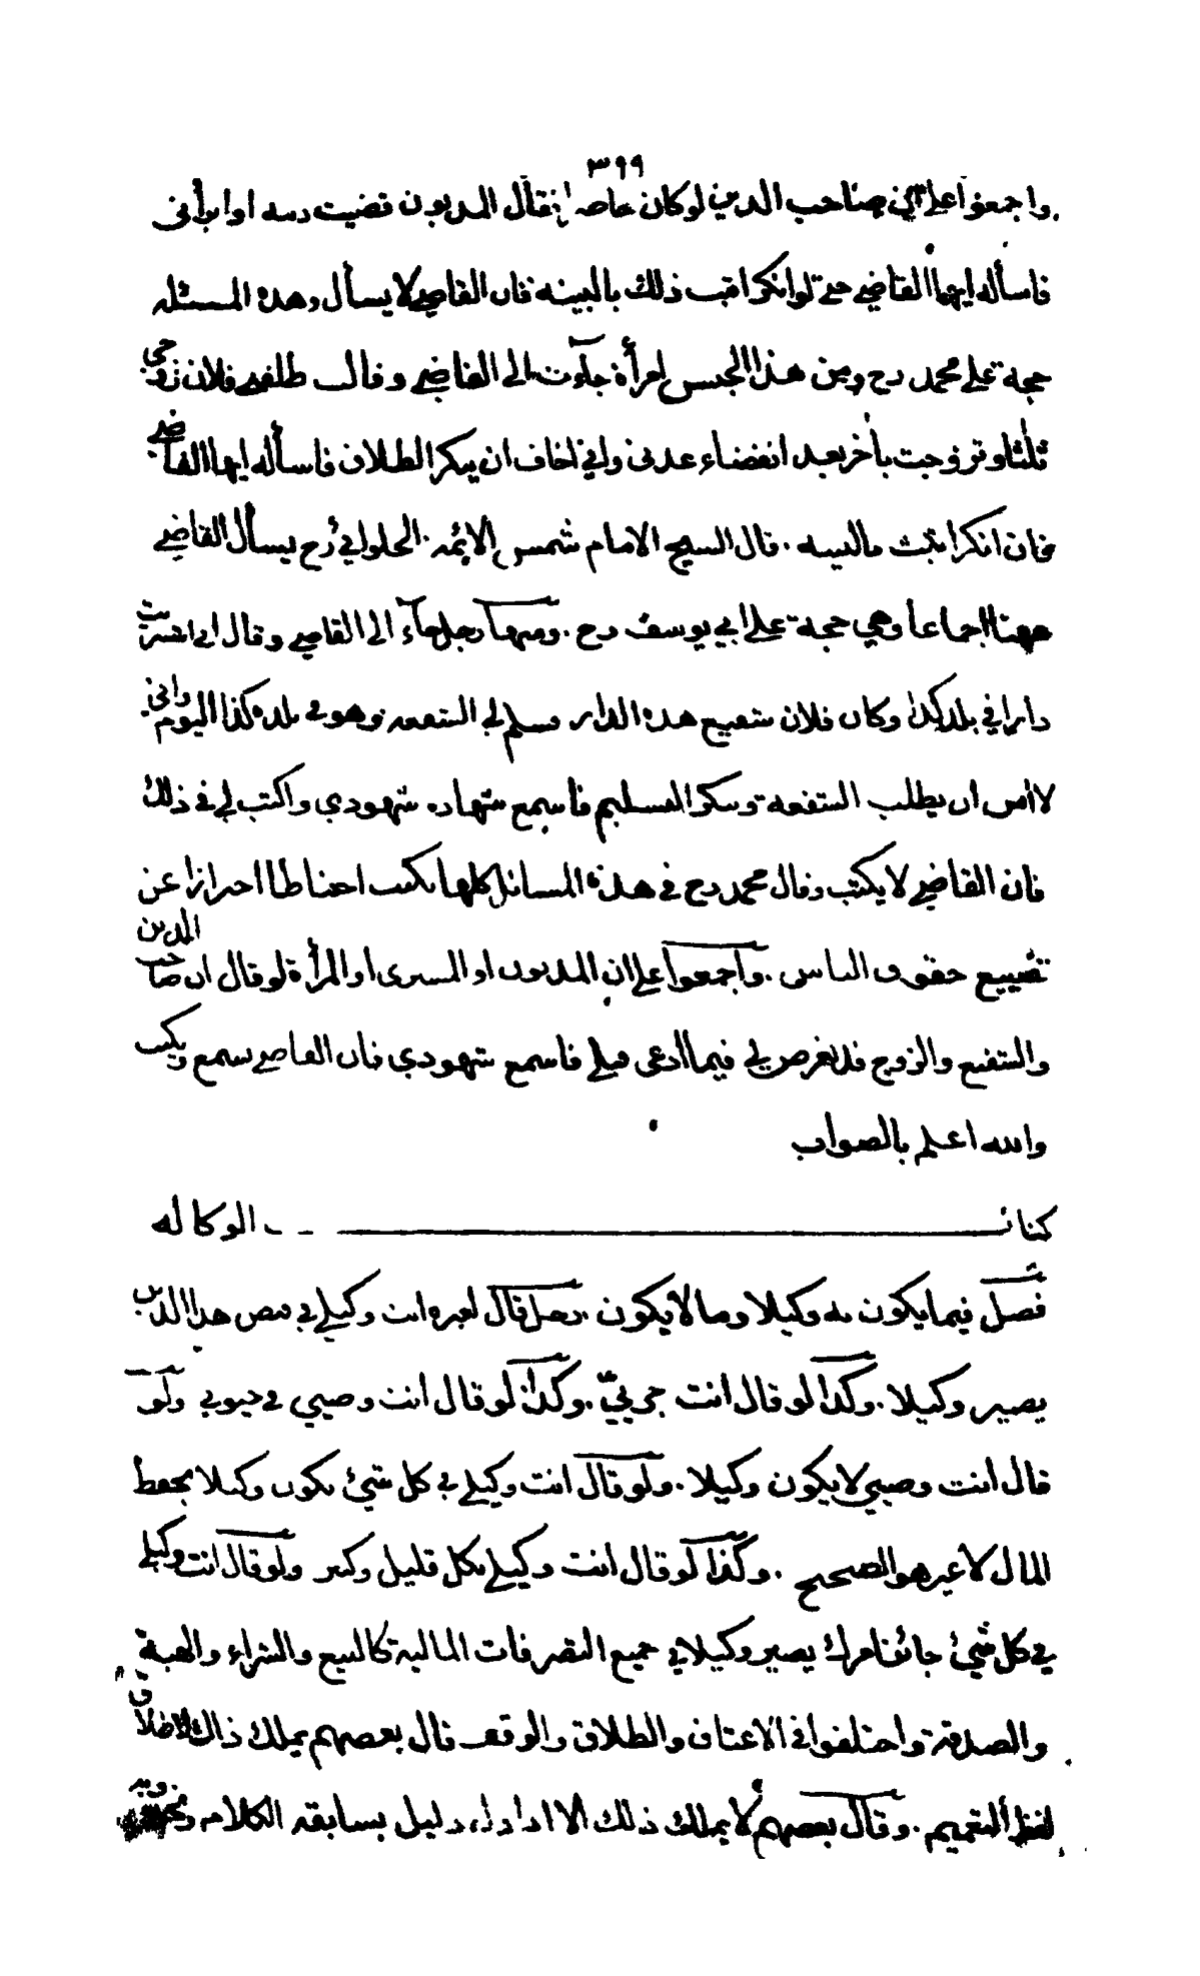 ٣٩٩
واجمعوا على ان صاحب الدين لو كان حاصرا فقال المديون قضيت دينه او ابرأنى
فاسأله ايها القاضي حتى لو انكر اثبت ذلك بالبينه فان القاضي لا يسأل وهذه المسئله
حجة على محمد رح ومن هذا الجنس امرأة جاءت الى القاضي وقالت طلقني فلان زوجي
ثلثا وتزوجت بأخر بعد انقضاء عدتى واني اخاف ان ينكر الطلاق فاسأله ايها القاضي
فان انكر اثبت بالبينه . قال الشيخ الامام شمس الائمه الحلواني رح يسأل القاضي
ههنا اجماعا وهي حجة على ابي يوسف رح . ومنها رجل جاء الى القاضي وقال اني اشتريت
دارا في بلد كذا وكان فلان شفيع هذه الدار فسلم لي الشفعه وهو في بلده كذا اليوم واني
لا امن ان يطلب الشفعة وينكر التسليم فاسمع شهاده شهودي واكتب لي في ذلك
فان القاضي لا يكتب وقال محمد رح في هذه المسائل كلها يكتب احتياطا احترازا عن
تضييع حقوق الناس . واجمعوا على ان المديون او المشترى او المرأة لو قال ان صاحب الدين
والشفيع والزوج قد تعرض لي فيما ادعى قبلي فاسمع شهودي فان القاضي يسمع ويكتب
والله اعلم بالصواب
كتاب الوكاله
فصل فيما يكون به وكيلا وما لا يكون . رجل قال لغيره انت وكيلي في قبض هذا الدين
يصير وكيلا . وكذا لو قال انت جريّي . وكذا لو قال انت وصيي في حيوتي ولو
قال انت وصيي لا يكون وكيلا . ولو قال انت وكيلي في كل شيئ يكون وكيلا بحفظ
المال لا غير هو الصحيح . وكذا لو قال انت وكيلي بكل قليل وكثير ولو قال انت وكيلي
في كل شيئ جائز امرك يصير وكيلا في جميع التصرفات المالية كالبيع والشراء والهبة
والصدقة واختلفوا في الاعتاق والطلاق والوقف قال بعضهم يملك ذلك لاطلاق
لفظ التعميم . وقال بعضهم لا يملك ذلك الا اذا دل دليل بسابقه الكلام ونحوه وبه